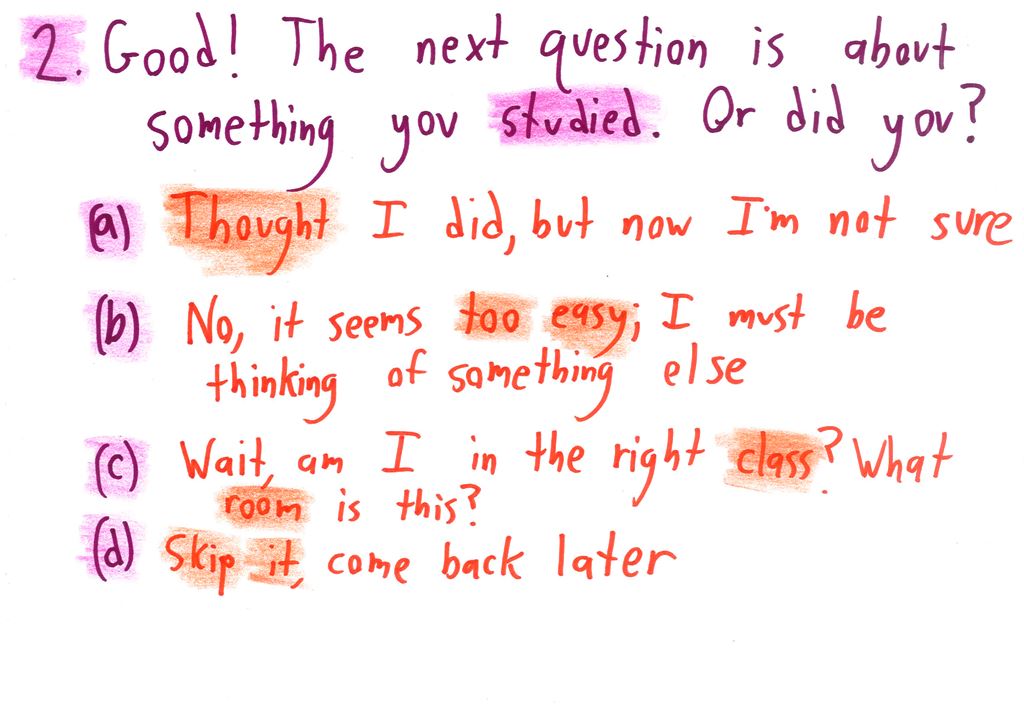 2. Good! The next question is about
something you studied. Or did you?
(a) Thought I did, but now I'm not sure
(b) No, it seems too easy; I must be
thinking of something else
(c) Wait, am I in the right class? What
room is this?
(d) Skip it, come back later